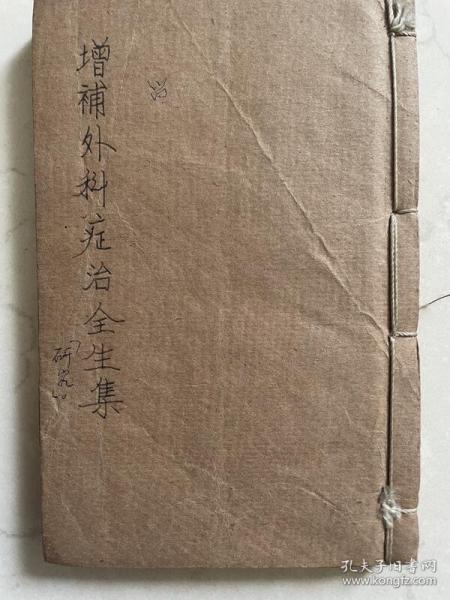 增补外科症治全生集
研究
孔夫子旧书网
www.kongfz.com